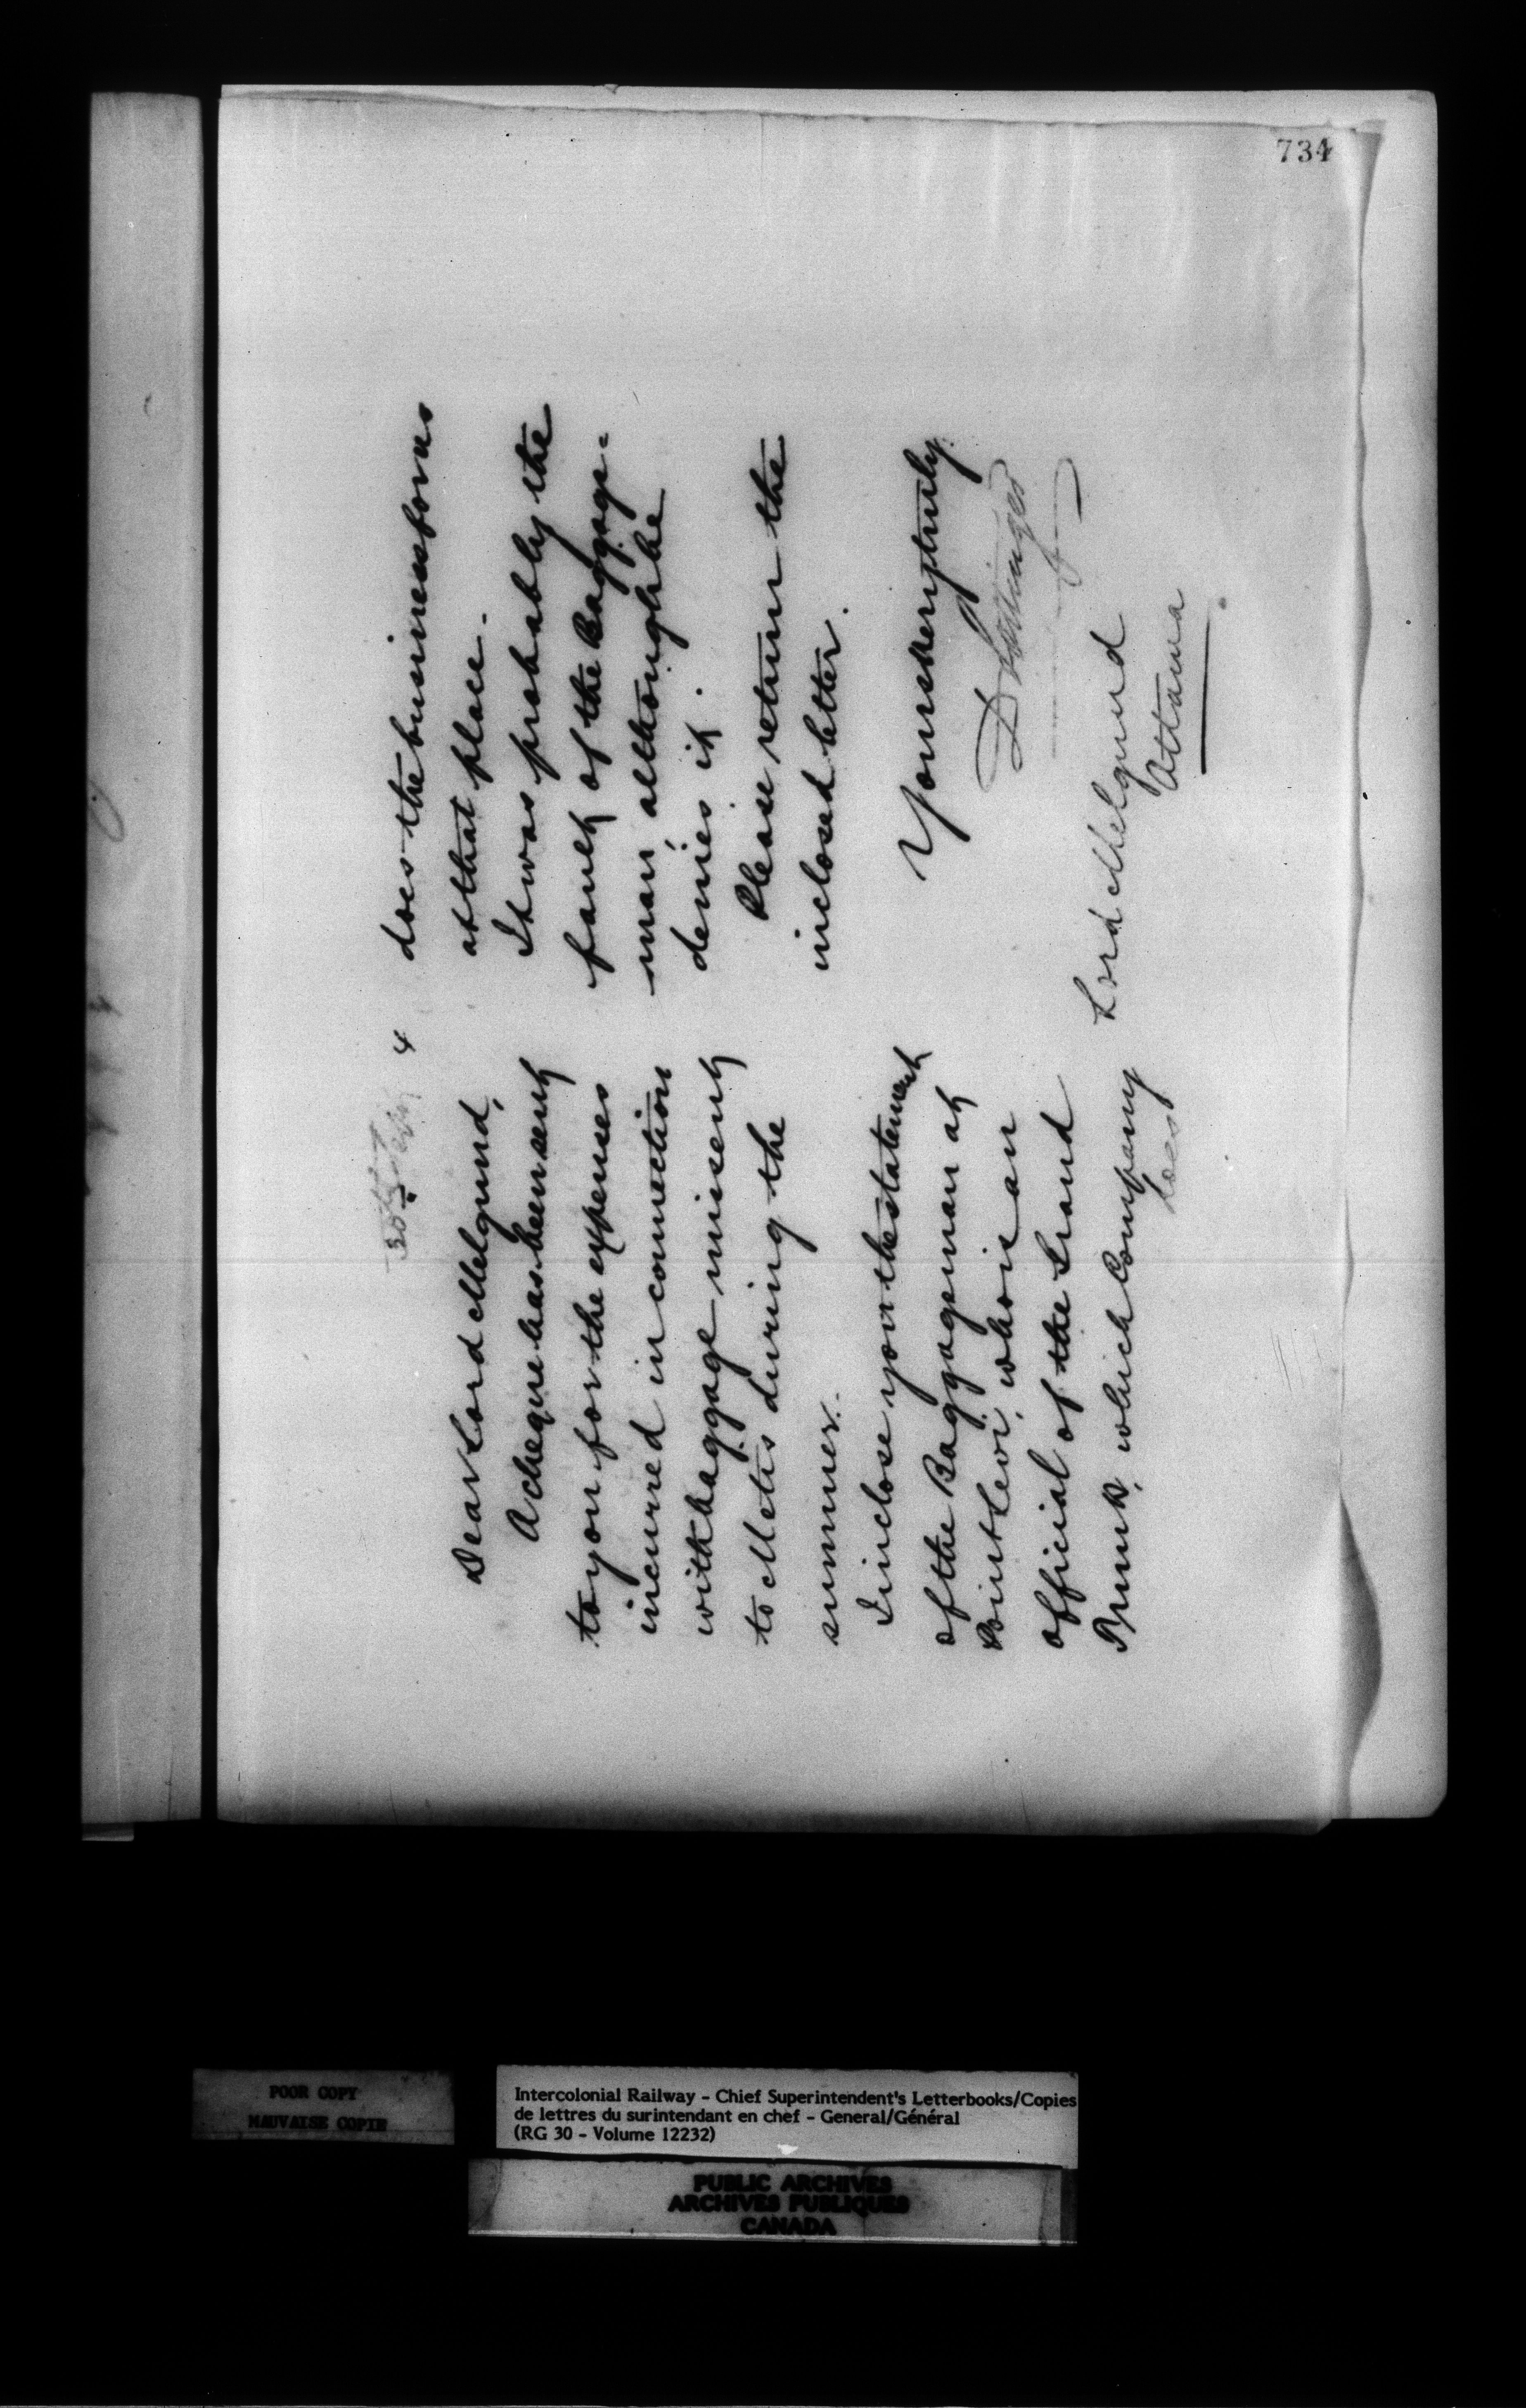 734
Dear Lord Melgund,
A cheque has been sent
to you for the expenses
incurred in connection
with baggage missent
to Metis during the
summer.
I inclose you the statement
of the Baggageman at
Point Levi, who is an
official of the Grand
Trunk, which Company
does
does the business for us
at that place.
It was probably the
fault of the Baggage=
man, although he
denies it.
Please return the
inclosed letter.
Yours very truly
D Pottinger
Lord Melgund
Ottawa
POOR COPY
MAUVAISE COPIE
Intercolonial Railway - Chief Superintendent's Letterbooks/Copies
de lettres du surintendant en chef - General/Général
(RG 30 - Volume 12232)
PUBLIC ARCHIVES
ARCHIVES PUBLIQUES
CANADA